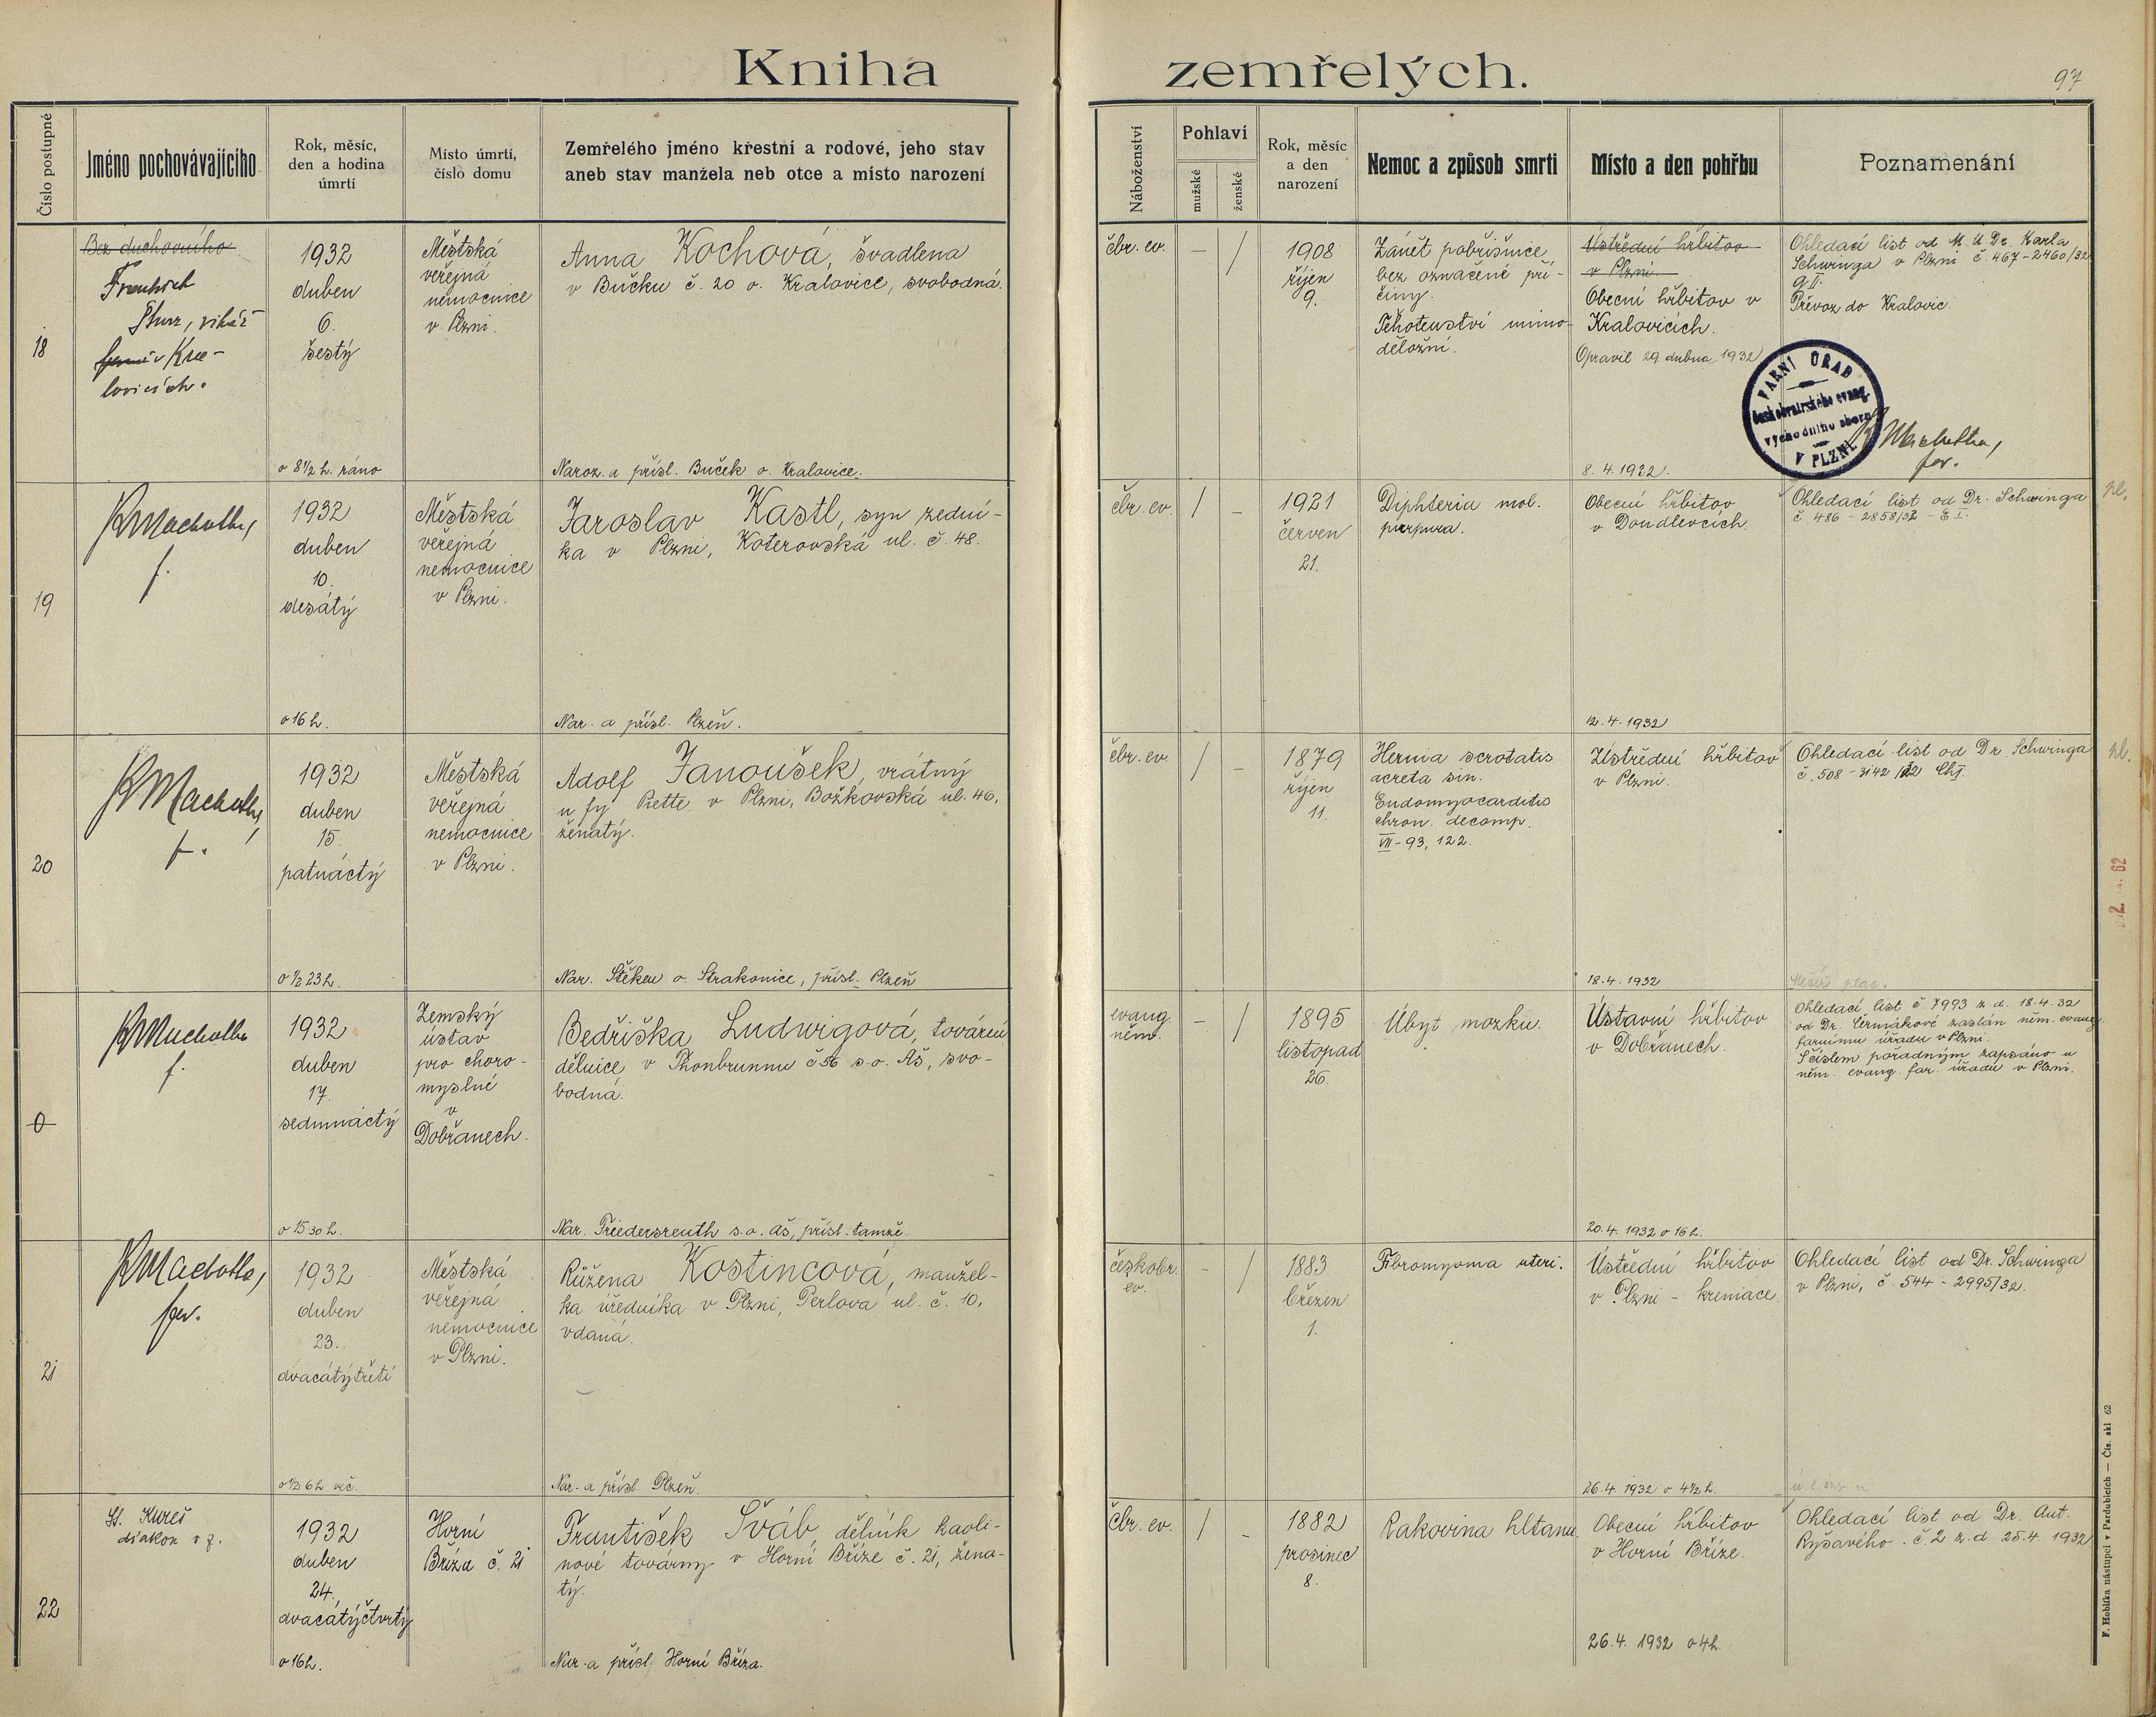 Kniha zemřelých.
97
Číslo postupné
Jméno pochovávajícího
Rok, měsíc,
den a hodina
úmrtí
Místo úmrtí,
číslo domu
Zemřelého jméno křestní a rodové, jeho stav
aneb stav manžela neb otce a místo narození
Náboženství
Pohlaví
mužské
ženské
Rok, měsíc
a den
narození
Nemoc a způsob smrti
Místo a den pohřbu
Poznamenání
18
Bez duchovního
vikář
v Kra-
lovicích.
1932
duben
6.
šestý
o 8½ h. ráno
Městská
veřejná
nemocnice
v Plzni.
Anna Kochová, švadlena
v Bučku č. 20 o. Kralovice, svobodná.
Naroz. a přísl. Buček o. Kralovice.
čbr. ev.
–
/
1908
říjen
9.
Zánět pobřišnice
bez označené pří-
činy.
Těhotenství mimo-
děložní.
Ústřední hřbitov
v Plzni.
Obecní hřbitov v
Kralovicích.
Opravil 29. dubna 1932
8. 4. 1932.
Ohledací list od M. U. Dr. Karla
Schwinga v Plzni č. 467-2460/32
Převoz do Kralovic.
FARNÍ ÚŘAD
českobratrského evang.
východního sboru
V PLZNI
Machotka,
far.
19
KMachotka,
f.
1932
duben
10.
desátý
o 16 h.
Městská
veřejná
nemocnice
v Plzni.
Jaroslav Kastl, syn zední-
ka v Plzni, Koterovská ul. č. 48.
Nar. a přísl. Plzeň.
čbr. ev.
/
–
1921
červen
21.
Diphteria mol.
purpura.
Obecní hřbitov
v Doudlevcích.
12. 4. 1932
Ohledací list od Dr. Schwinga
č 486 - 2858/32 - E I.
pl.
20
KMachotka,
f.
1932
duben
15.
patnáctý
o ½ 23 h.
Městská
veřejná
nemocnice
v Plzni.
Adolf Janoušek, vrátný
u fy Piette v Plzni, Božkovská ul. 46,
ženatý.
Nar. Štěkeň o. Strakonice, přísl. Plzeň
čbr. ev.
/
–
1879
říjen
11.
Hernia scrotatis
acreta sin.
Endomyocarditis
chron. decomp.
VII - 93, 122.
Ústřední hřbitov
v Plzni.
18. 4. 1932
Ohledací list od Dr Schwinga
č. 508 - 3142/32 Ch I.
pl.
0
KMachotka
f.
1932
duben
17.
sedmnáctý
o 15 30 h.
Zemský
ústav
pro choro-
myslné
v
Dobřanech.
Bedřiška Ludwigová, tovární
dělnice v Thonbrunnu č 56 s. o. Aš, svo-
bodná.
Nar. Friedersreuth s. o. Aš, přísl. tamže
evang.
něm.
–
/
1895
listopad
26.
Úbyt mozku.
Ústavní hřbitov
v Dobřanech.
20. 4. 1932 o 16 h.
Ohledací list č. 7993 z. d. 18. 4. 32
od Dr. Čermákové zaslán něm. evang.
farnímu úřadu v Plzni.
S číslem pořadným zapsáno u
něm. evang. far. úřadu v Plzni.
21
KMachotka,
far.
1932
duben
23.
dvacátýtřetí
o ½ 6 h več.
Městská
veřejná
nemocnice
v Plzni.
Růžena Kostincová, manžel-
ka úředníka v Plzni, Perlová ul. č. 10,
vdaná.
Nar. a přísl. Plzeň.
českobr.
ev.
–
/
1883
březen
1.
Fibromyoma uteri.
Ústřední hřbitov
v Plzni - kremace.
26. 4. 1932 o 4½ h.
Ohledací list od Dr. Schwinga
v Plzni, č. 544 - 2995/32.
22
St. Kureš
diakon
1932
duben
24.
dvacátýčtvrtý
o 16 h.
Horní
Bříza č. 21
František Šváb, dělník kaoli-
nové továrny v Horní Bříze č. 21, žena-
tý.
Nar. a přísl. Horní Bříza.
Čbr. ev.
/
–
1882
prosinec
8.
Rakovina hltanu.
Obecní hřbitov
v Horní Bříze.
26. 4. 1932 o 4 h.
Ohledací list od Dr. Ant.
Ryšavého. č. 2 z. d 25. 4. 1932
F. Hoblíka nástupci v Pardubicích — Čís. skl 62